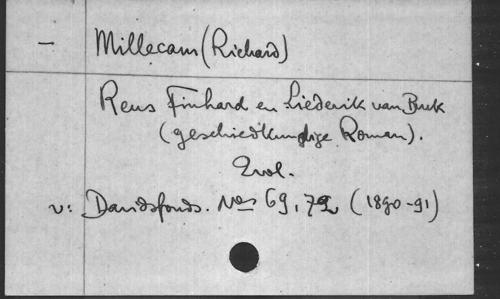 — Millecam (Richard)
Reus Finhard en Liederik van Buk
(geschiedkundige Roman).
2 vol.
v: Davidsfonds. Nos 69, 72 (1890-91)